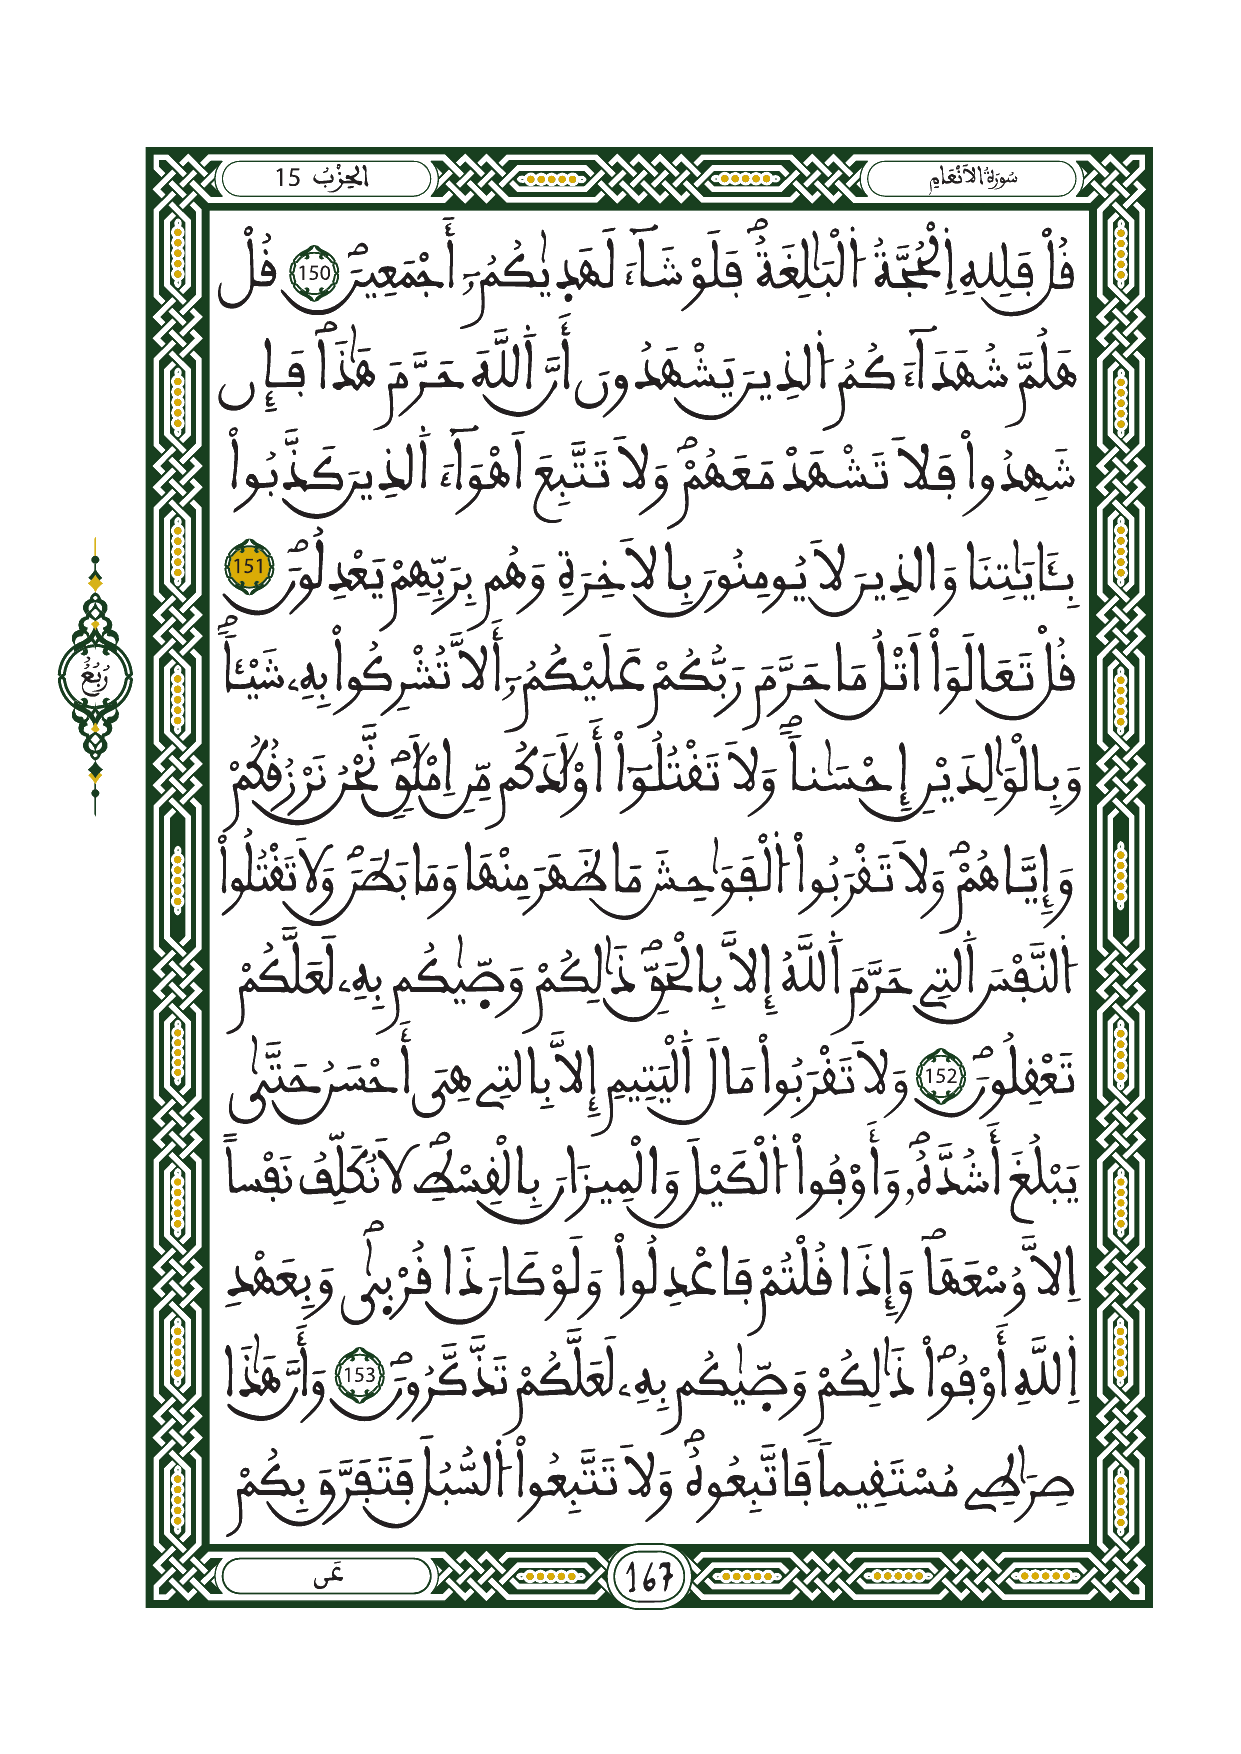 سُورَةُ الاَنْعَامِ
الحِزْبُ 15
قُلْ فَلِلهِ اِ۬لْحُجَّةُ اُ۬لْبَٰلِغَةُۖ فَلَوْ شَآءَ لَهَد۪يٰكُمُۥٓ أَجْمَعِينَۖ 150 قُلْ
هَلُمَّ شُهَدَآءَكُمُ اُ۬لذِينَ يَشْهَدُونَ أَنَّ اَ۬للَّهَ حَرَّمَ هَٰذَاۖ فَإِن
شَهِدُواْ فَلاَ تَشْهَدْ مَعَهُمْۖ وَلاَ تَتَّبِعَ اَهْوَآءَ اَ۬لذِينَ كَذَّبُواْ
بِـَٔايَٰتِنَا وَالذِينَ لاَ يُومِنُونَ بِالاَخِرَةِ وَهُم بِرَبِّهِمْ يَعْدِلُونَۖ 151
قُلْ تَعَالَوَاْ اَتْلُ مَا حَرَّمَ رَبُّكُمْ عَلَيْكُمُۥٓ أَلاَّ تُشْرِكُواْ بِهِۦ شَيْـٔاٗۖ
وَبِالْوَٰلِدَيْنِ إِحْسَٰناٗۖ وَلاَ تَقْتُلُوٓاْ أَوْلَٰدَكُم مِّنِ اِمْلَٰقٖۖ نَّحْنُ نَرْزُقُكُمْ
وَإِيَّاهُمْۖ وَلاَ تَقْرَبُواْ اُ۬لْفَوَٰحِشَ مَا ظَهَرَ مِنْهَا وَمَا بَطَنَۖ وَلاَ تَقْتُلُواْ
اُ۬لنَّفْسَ اَ۬لتِے حَرَّمَ اَ۬للَّهُ إِلاَّ بِالْحَقِّۖ ذَٰلِكُمْ وَصّ۪يٰكُم بِهِۦ لَعَلَّكُمْ
تَعْقِلُونَۖ 152 وَلاَ تَقْرَبُواْ مَالَ اَ۬لْيَتِيمِ إِلاَّ بِالتِے هِيَ أَحْسَنُ حَتَّىٰ
يَبْلُغَ أَشُدَّهُۥۖ وَأَوْفُواْ اُ۬لْكَيْلَ وَالْمِيزَانَ بِالْقِسْطِۖ لاَ نُكَلِّفُ نَفْساً
اِلاَّ وُسْعَهَاۖ وَإِذَا قُلْتُمْ فَاعْدِلُواْ وَلَوْ كَانَ ذَا قُرْب۪ىٰۖ وَبِعَهْدِ
اِ۬للَّهِ أَوْفُواْۖ ذَٰلِكُمْ وَصّ۪يٰكُم بِهِۦ لَعَلَّكُمْ تَذَّكَّرُونَۖ 153 وَأَنَّ هَٰذَا
صِرَٰطِے مُسْتَقِيماٗ فَاتَّبِعُوهُۖ وَلاَ تَتَّبِعُواْ اُ۬لسُّبُلَ فَتَفَرَّقَ بِكُمْ
رُبُعُ
عَى
167